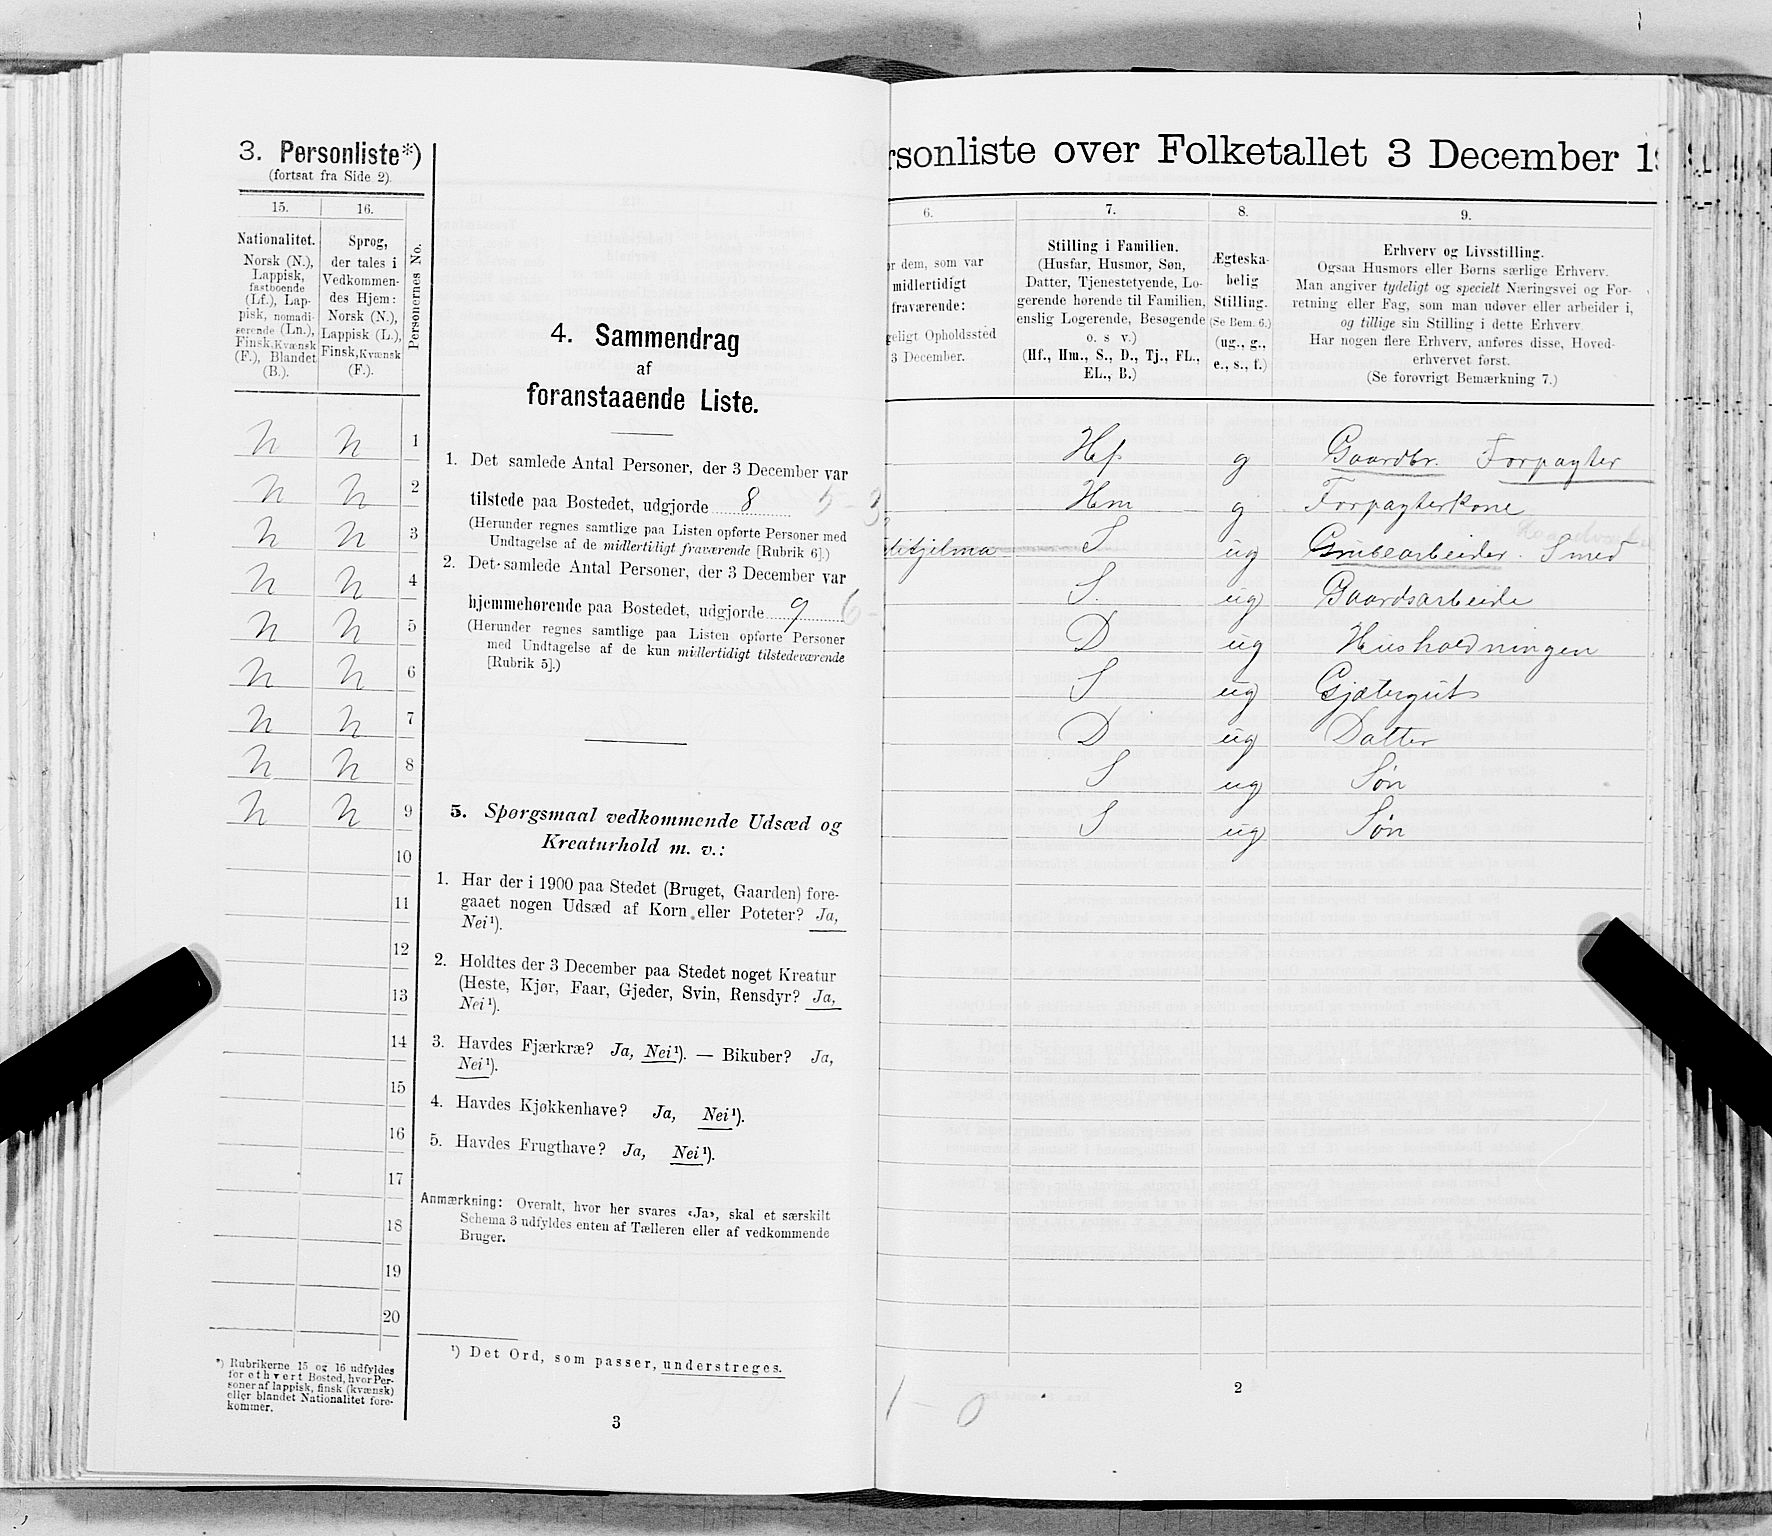 3. Personliste*)
(fortsat fra Side 2).
15.
16.
Nationalitet.
Norsk (N.),
Lappisk,
fastboende
(Lf.), Lap-
pisk, nomadi-
serende (Ln.),
Finsk, Kvænsk
(F.), Blandet
(B.).
Sprog,
der tales i
Vedkommen-
des Hjem:
Norsk (N.),
Lappisk (L.),
Finsk, Kvænsk
(F.).
Personernes No.
N N 1
N N 2
N N 3
N N 4
N N 5
N N 6
N N 7
N N 8
N N 9
10
11
12
13
14
15
16
17
18
19
20
*) Rubrikerne 15 og 16 udfyldes
for ethvert Bosted, hvor Per-
soner af lappisk, finsk (kvænsk)
eller blandet Nationalitet fore-
kommer.
4. Sammendrag
af
foranstaaende Liste.
1. Det samlede Antal Personer, der 3 December var
tilstede paa Bostedet, udgjorde 8 5 - 3
(Herunder regnes samtlige paa Listen opførte Personer med
Undtagelse af de midlertidigt fraværende [Rubrik 6].)
2. Det samlede Antal Personer, der 3 December var
hjemmehørende paa Bostedet, udgjorde 9 6 -
(Herunder regnes samtlige paa Listen opførte Personer
med Undtagelse af de kun midlertidigt tilstedeværende
[Rubrik 5].)
5. Spørgsmaal vedkommende Udsæd og
Kreaturhold m. v.:
1. Har der i 1900 paa Stedet (Bruget, Gaarden) fore-
gaaet nogen Udsæd af Korn eller Poteter? Ja,
Nei¹).
2. Holdtes der 3 December paa Stedet noget Kreatur
(Heste, Kjør, Faar, Gjeder, Svin, Rensdyr? Ja,
Nei¹).
3. Havdes Fjærkræ? Ja, Nei¹). — Bikuber? Ja,
Nei¹).
4. Havdes Kjøkkenhave? Ja, Nei¹).
5. Havdes Frugthave? Ja, Nei¹).
Anmærkning: Overalt, hvor her svares «Ja», skal et særskilt
Schema 3 udfyldes enten af Tælleren eller af vedkommende
Bruger.
¹) Det Ord, som passer, understreges.
3
rsonliste over Folketallet 3 December 19
6.
7.
8.
9.
or dem, som var
midlertidigt
fraværende:
geligt Opholdssted
3 December.
Stilling i Familien.
(Husfar, Husmor, Søn,
Datter, Tjenestetyende, Lo-
gerende hørende til Familien,
enslig Logerende, Besøgende
o. s v.)
(Hf., Hm., S., D., Tj., FL.,
EL., B.)
Ægteska-
belig
Stilling.
(Se Bem. 6.)
(ug., g.,
e., s., f.)
Erhverv og Livsstilling.
Ogsaa Husmors eller Børns særlige Erhverv.
Man angiver tydeligt og specielt Næringsvei og For-
retning eller Fag, som man udøver eller arbeider i,
og tillige sin Stilling i dette Erhverv.
Har nogen flere Erhverv, anføres disse, Hoved-
erhvervet først.
(Se forøvrigt Bemærkning 7.)
Hf g Gaardbr. Forpagter
Hm g Forpagterkone
litjelma S ug Grubearbeider. Smed
S. ug Gaardsarbeide
D ug Husholdningen
S ug Gjætergut
D ug Datter
S ug Søn
S ug Søn
1 - 0
2